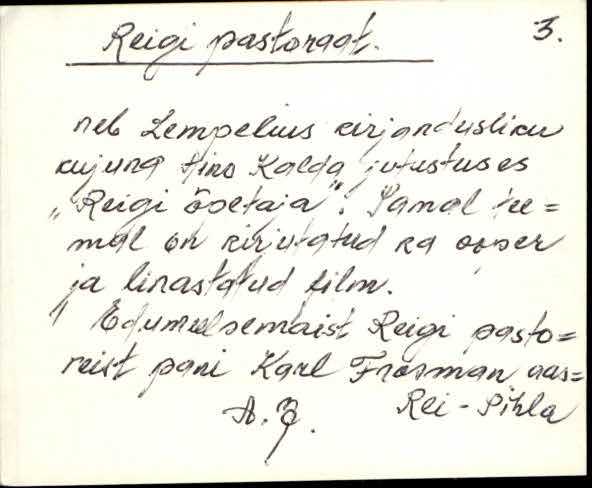 Reigi pastoraat. 3.
neb Lempelius kirjandusliku
kujuna Aino Kalda jutustuses
„Reigi õpetaja". Samal tee=
mal on kirjutatud ka ooper
ja linastatud film.
Edumeelsemaist Reigi pasto=
reist pani Karl Frosman aas=
Rei-Pihla